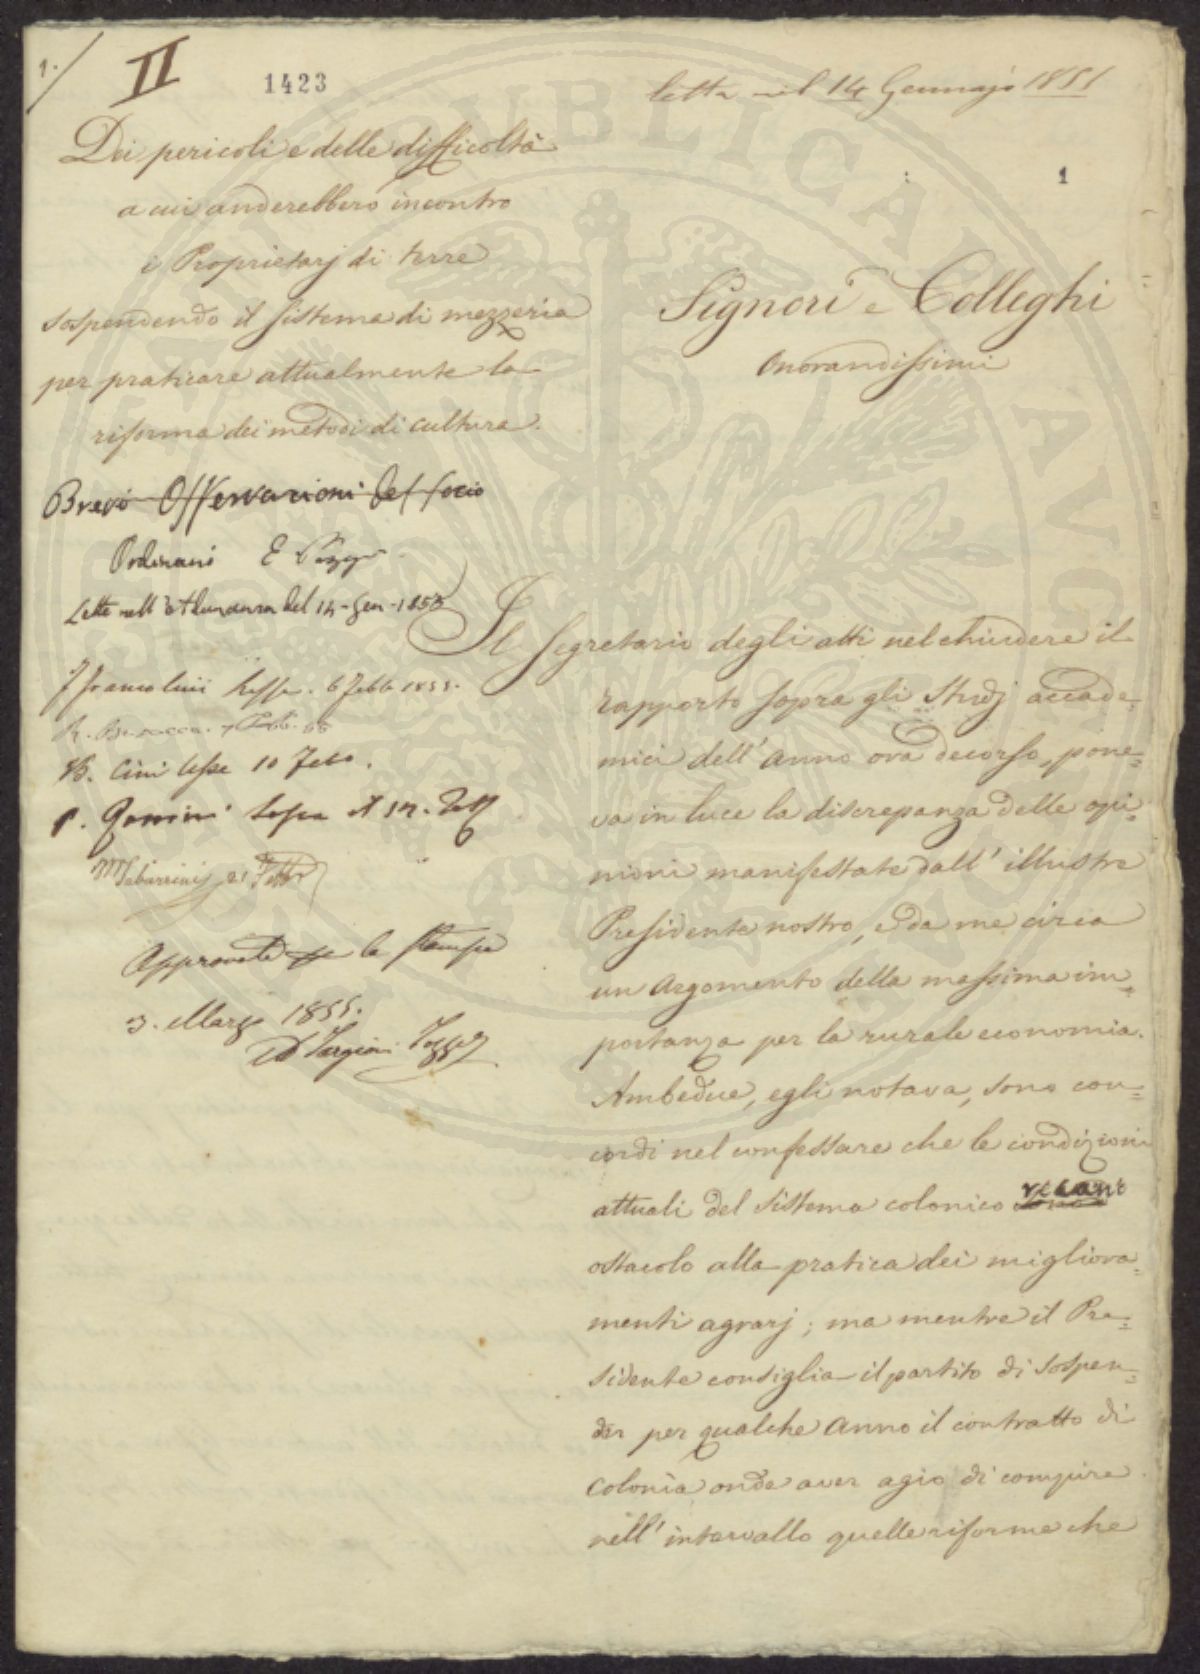 1.
II
1423
letta nel 14 Gennajo 1855
1
Dei pericoli e delle difficoltà
a cui anderebbero incontro
i Proprietarj di terre
sospendendo il sistema di mezzeria
per praticare attualmente la
riforma dei metodi di cultura.
Brevi Osservazioni del socio
Ordinario E Poggi
Lette nell'Adunanza del 14 Gen 1855
Francolini lesse 6 Febb 1855.
B. Cini lesse 10 Febb.
Tabarrini 21 Febbr
Approvata per la stampa
3. Marzo 1855.
Ad Targioni Tozzetti
Signori e Colleghi
Onorandissimi
Il Segretario degli atti nel chiudere il
rapporto sopra gli Studj accade=
mici dell'anno ora decorso, pone=
va in luce la discrepanza delle opi=
nioni manifestate dall'illustre
Presidente nostro, e da me circa
un argomento della massima im=
portanza per la rurale economia.
Ambedue, egli notava, sono con=
cordi nel confessare che le condizioni
attuali del sistema colonico recano
ostacolo alla pratica dei migliora=
menti agrarj; ma mentre il Pre=
sidente consiglia il partito di sospen=
der per qualche anno il contratto di
colonìa onde aver agio di compire
nell'intervallo quelle riforme che